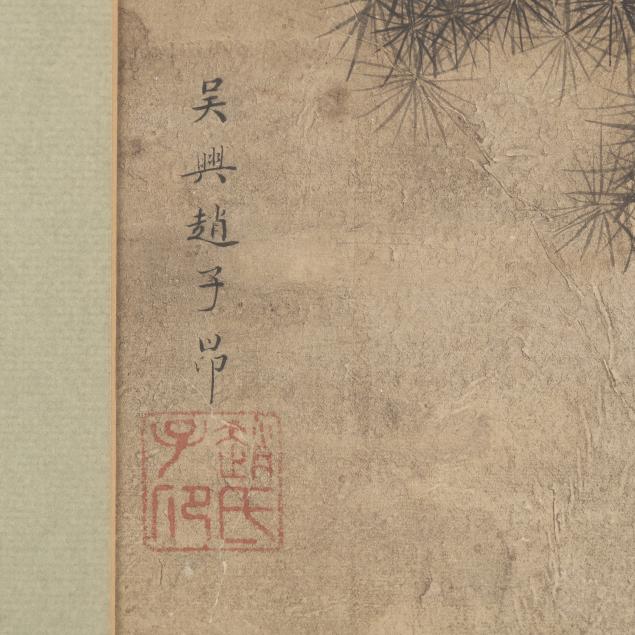 吴興趙子昂
趙氏
子昂